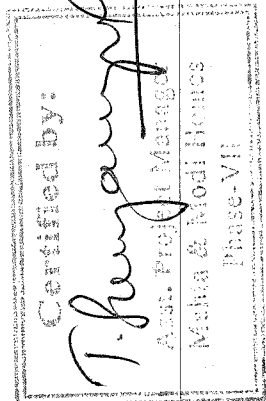 Certified by:
Asst. Project Manager
Mehta & Modi Homes
Phase-VII